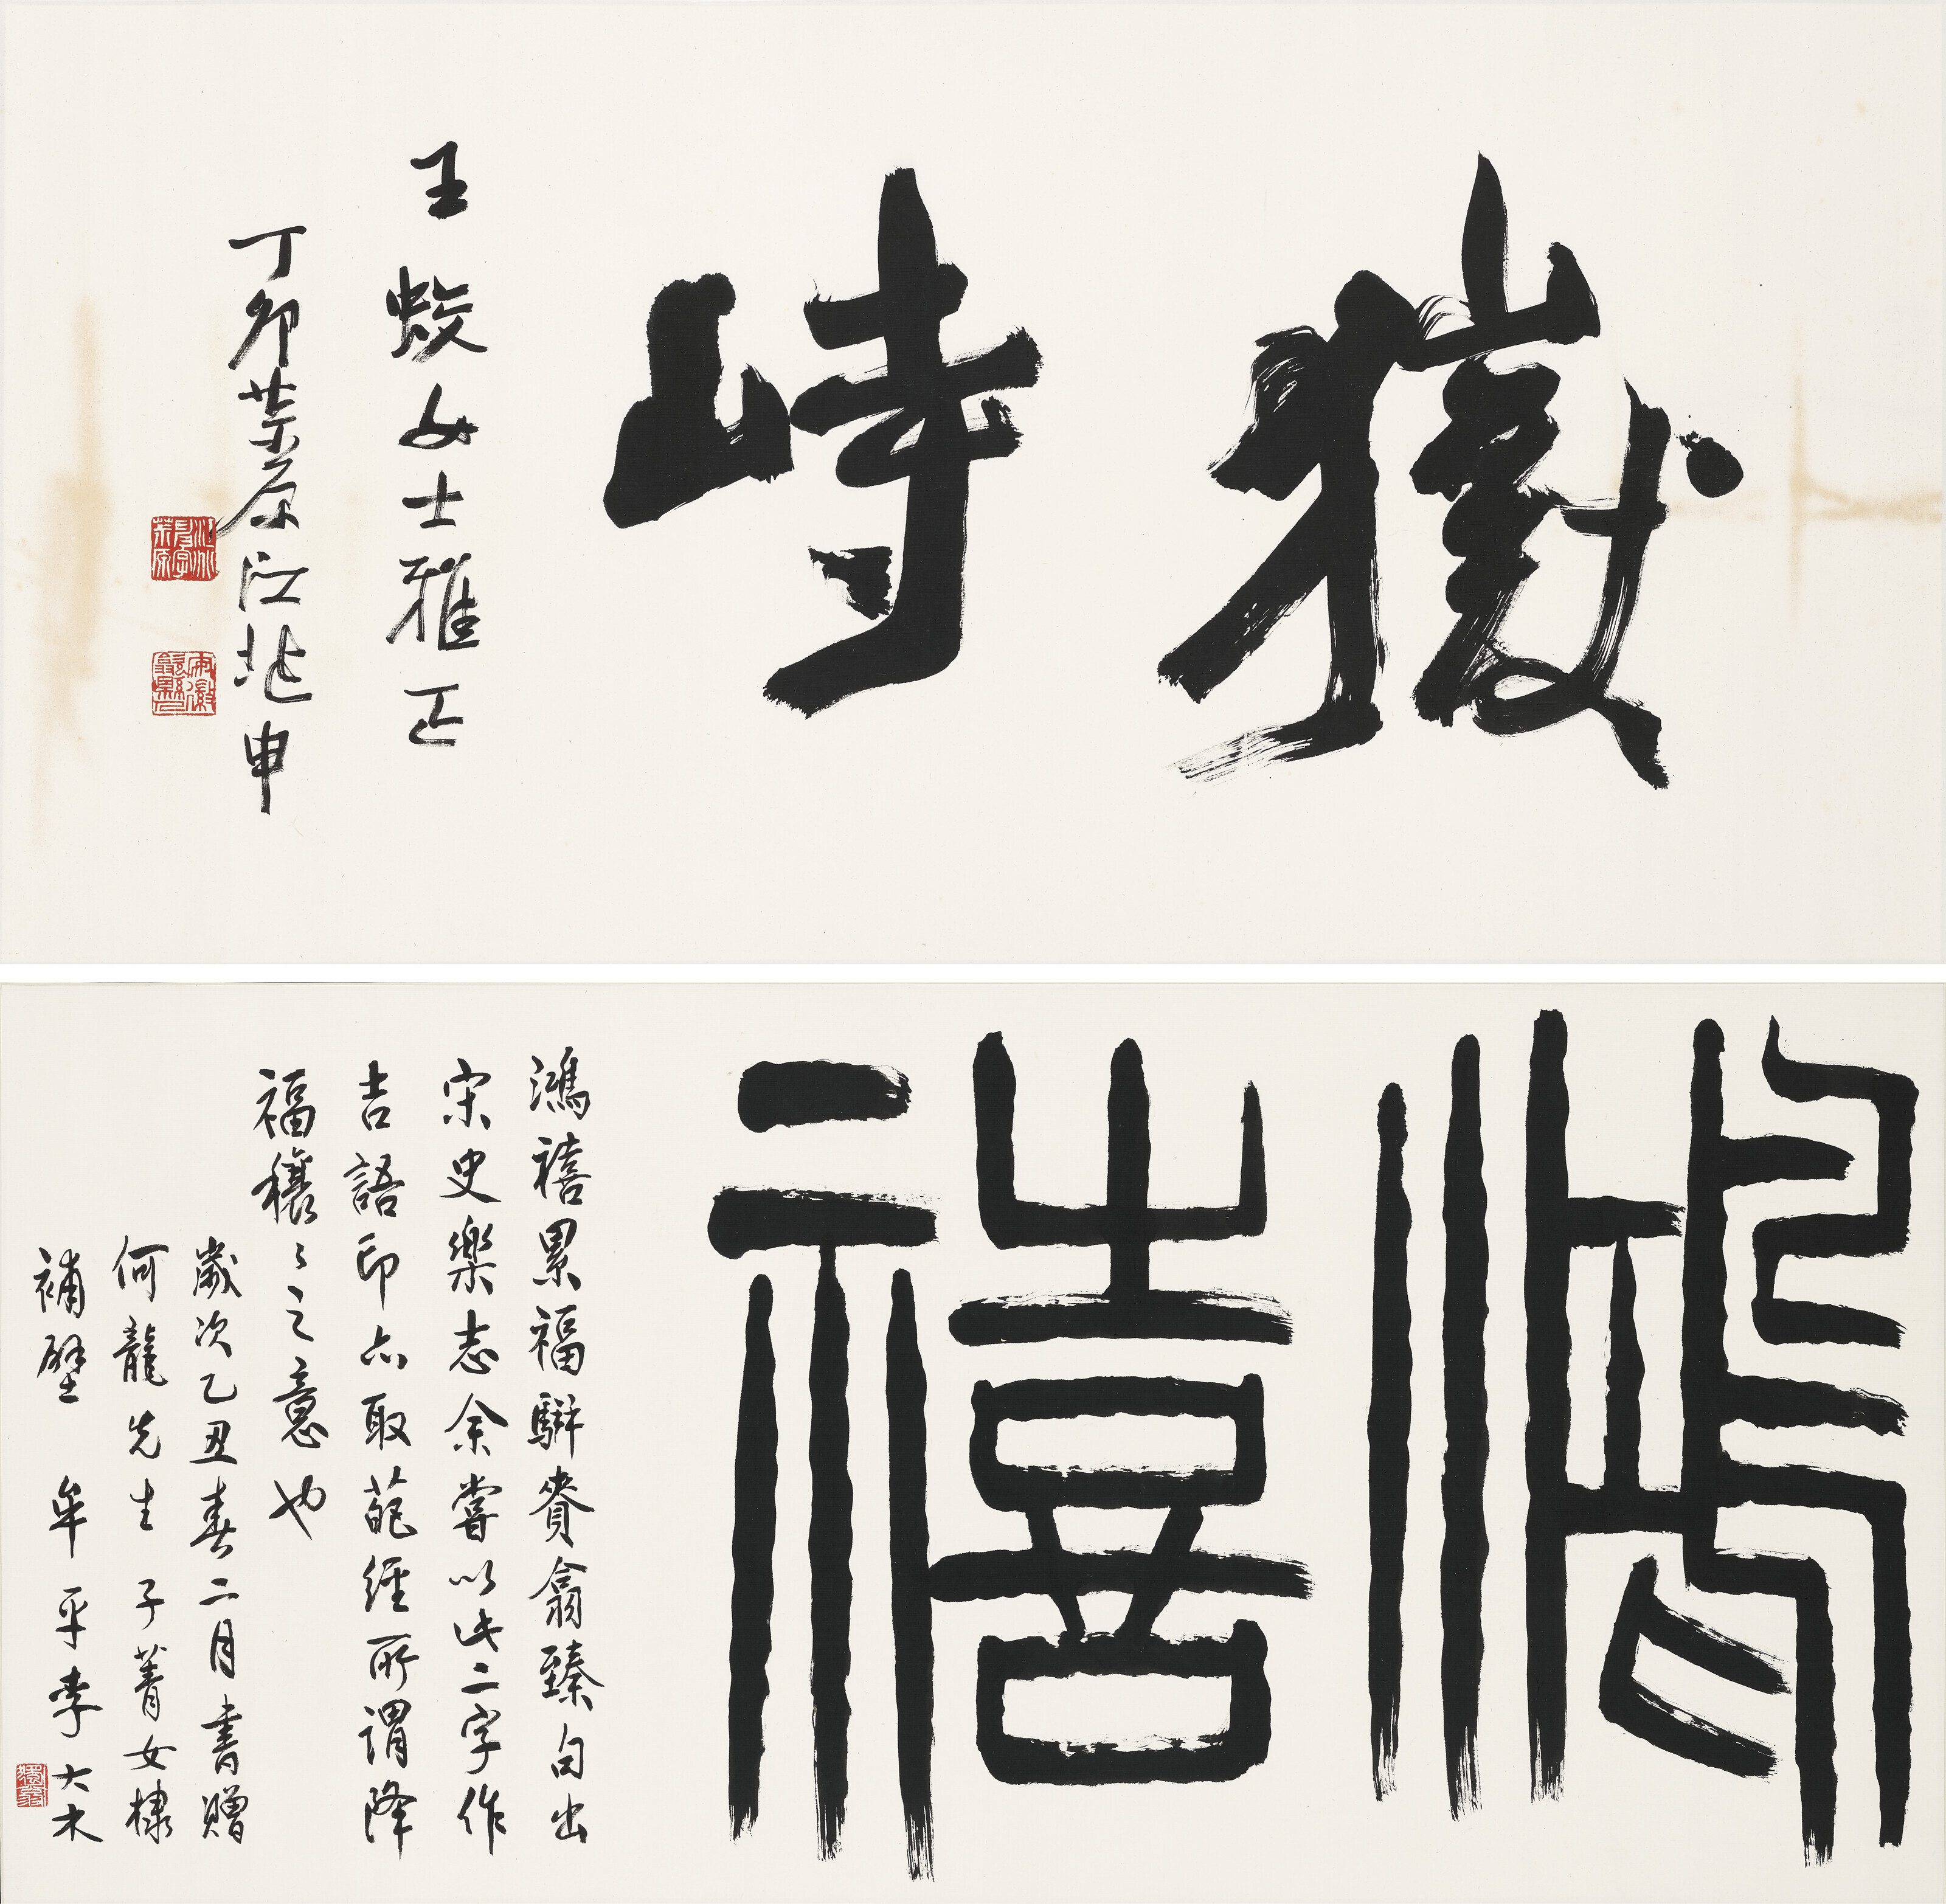 嶽峙
王蛟女士雅正
丁卯茮原江兆申
鴻禧
鴻禧累福駢賚翕臻句出
宋史樂志余嘗以此二字作
吉語印亦取葩經所謂降
福穰々之意也
歲次乙丑春二月書贈
何龍先生子菁女棣
補壁 牟平李大木